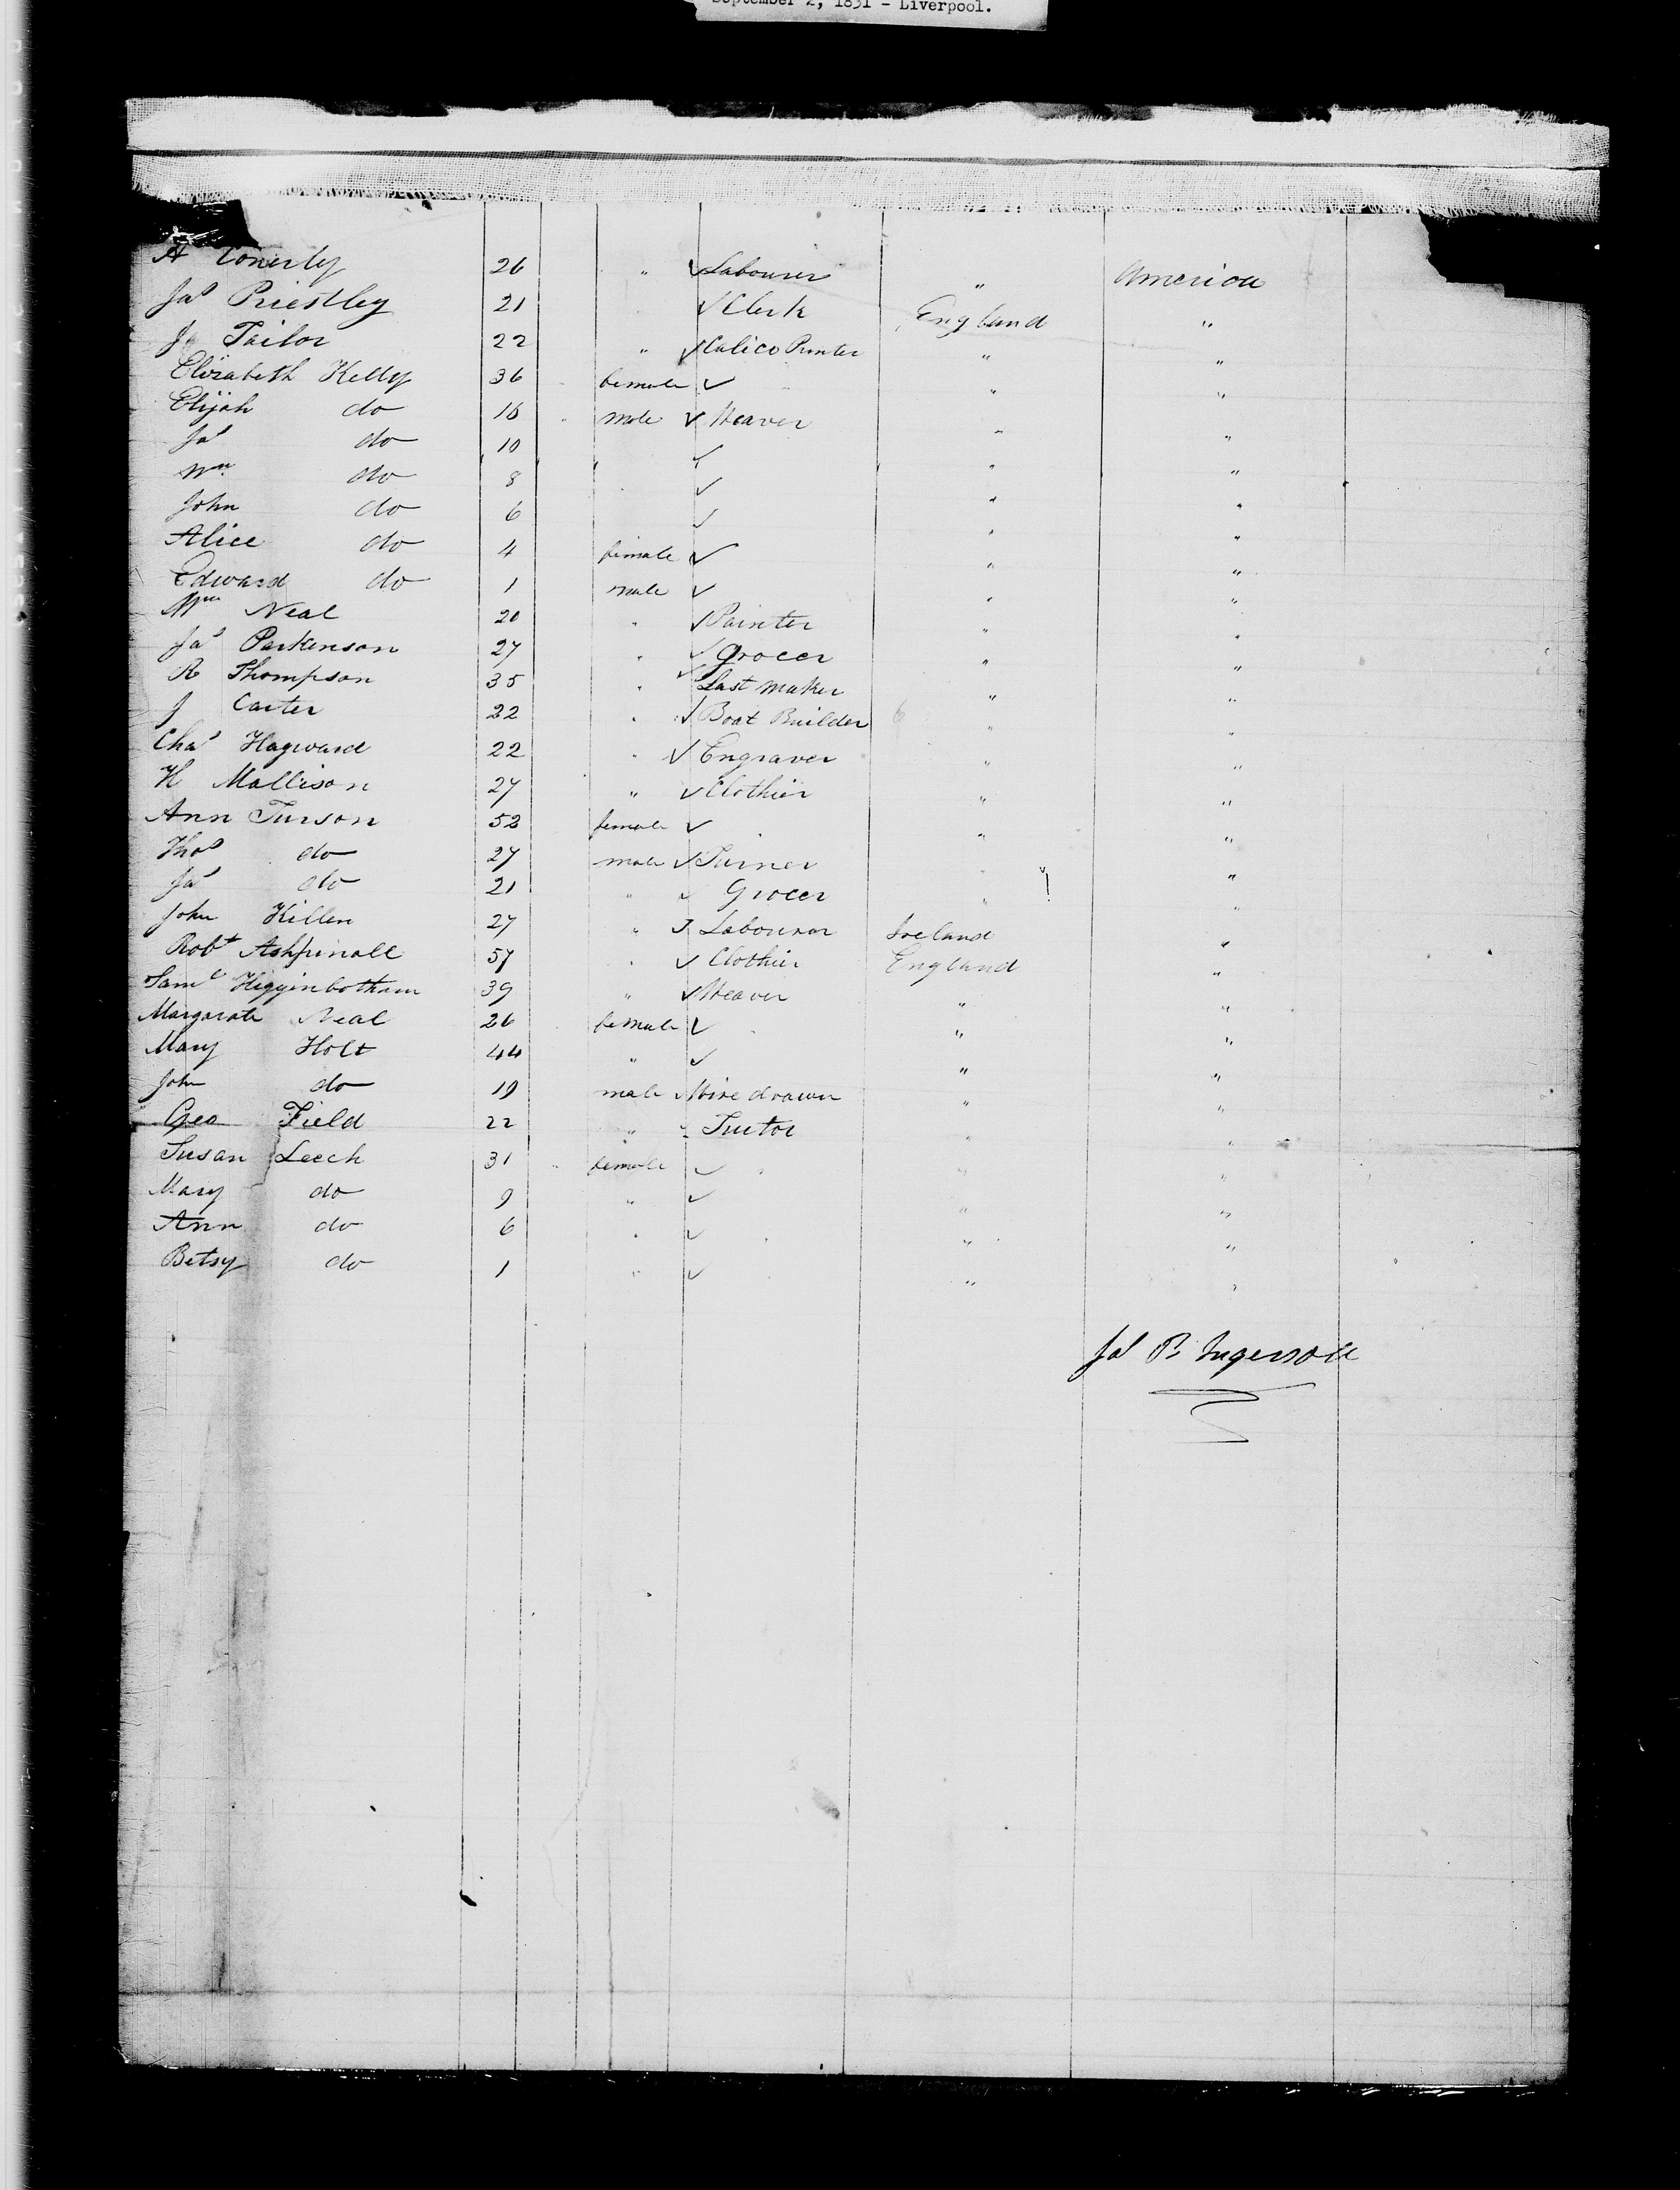 September 2, 1831 - Liverpool.
A Conerly 26 " ✓ Labourer " America
Jas Priestley 21 ✓ Clerk England "
Js Tailor 22 " ✓ Calico Printer " "
Elizabeth Kelly 36 female ✓ " "
Elijah do 16 male ✓ Weaver " "
Jas do 10 ✓ " "
Wm do 8 ✓ " "
John do 6 ✓ " "
Alice do 4 female ✓ " "
Edward do 1 male ✓ " "
Wm Neal 20 " ✓ Painter " "
Jas Parkenson 27 " ✓ Grocer " "
R Thompson 35 " ✓ Last Maker " "
J Carter 22 " ✓ Boat Builder " "
Chas Hayward 22 " ✓ Engraver " "
H Mallison 27 " ✓ Clothier " "
Ann Turson 52 female ✓ " "
Thos do 27 male ✓ Turner " "
Jas do 21 " ✓ Grocer " "
John Killen 27 " ✓ Labourer Ireland "
Robt Ashpinall 57 " ✓ Clothier England "
Saml Higginbotham 39 " ✓ Weaver " "
Margarate Neal 26 female ✓ " "
Mary Holt 44 " ✓ " "
John do 19 male ✓ Wire drawer " "
Geo Field 22 " ✓ Tutor " "
Susan Leech 31 female ✓ " "
Mary do 9 " ✓ " "
Ann do 6 " ✓ " "
Betsy do 1 " ✓ " "
Jas B Ingersoll